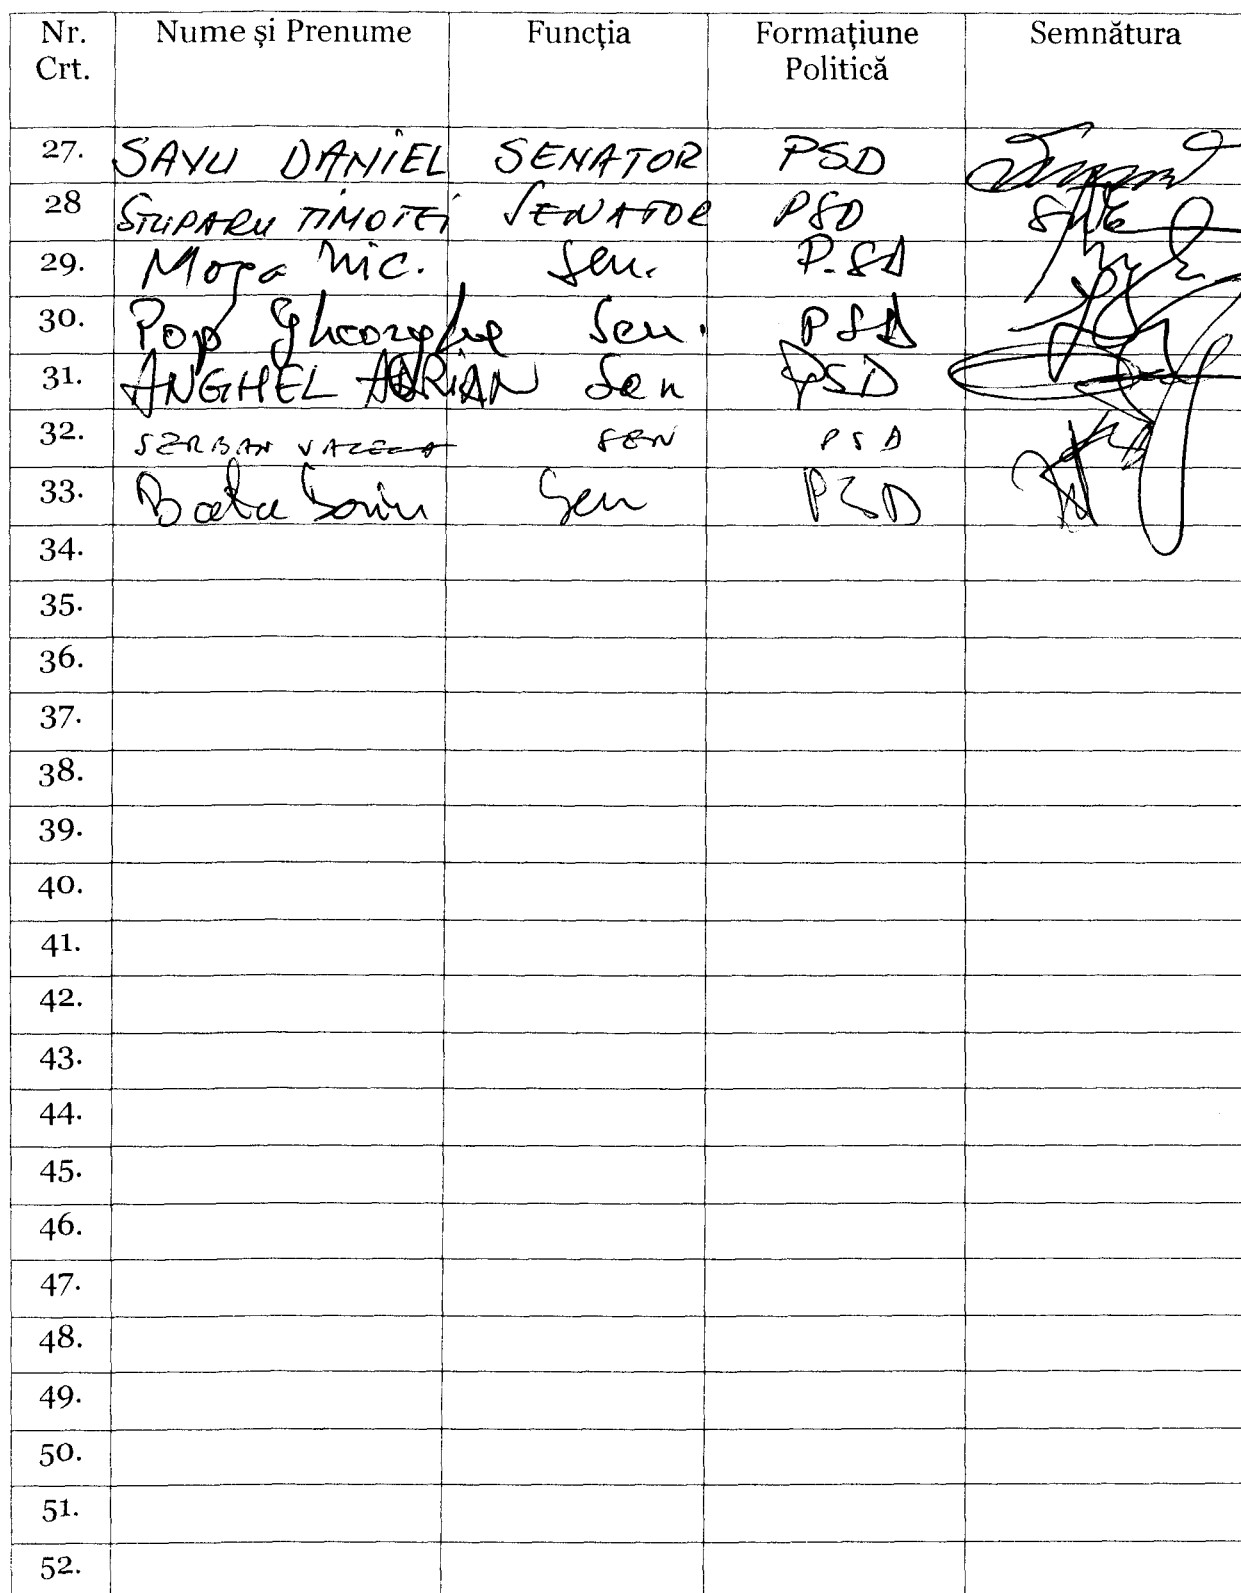 Nr. Crt. Nume și Prenume Funcția Formațiune Politică Semnătura
27. SAVU DANIEL SENATOR PSD
28 STUPARU TIMOTEI SENATOR PSD
29. Moga Nic. Sen. P.SD
30. Pop Gheorghe Sen. PSD
31. ANGHEL ADRIAN Sen PSD
32. SERBAN SEN PSD
33. Sorin Sen PSD
34.
35.
36.
37.
38.
39.
40.
41.
42.
43.
44.
45.
46.
47.
48.
49.
50.
51.
52.